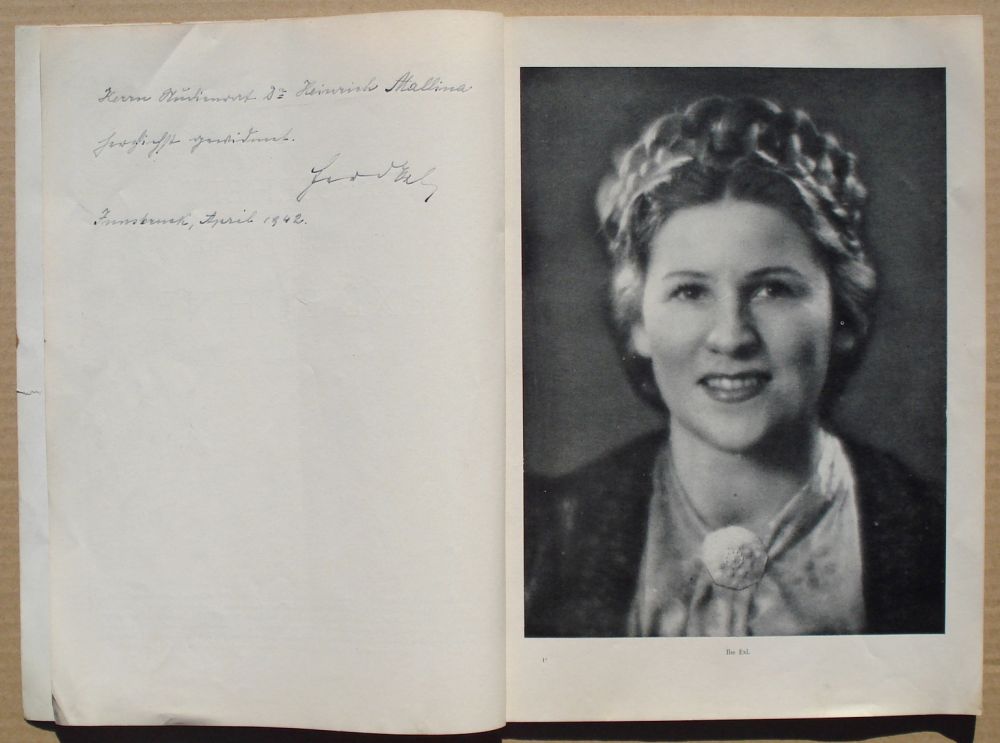 Herrn Studienrat Dr Heinrich Mallina
herzlichst gewidmet.
Ferd Exl
Innsbruck, April 1942.
Ilse Exl.
1*